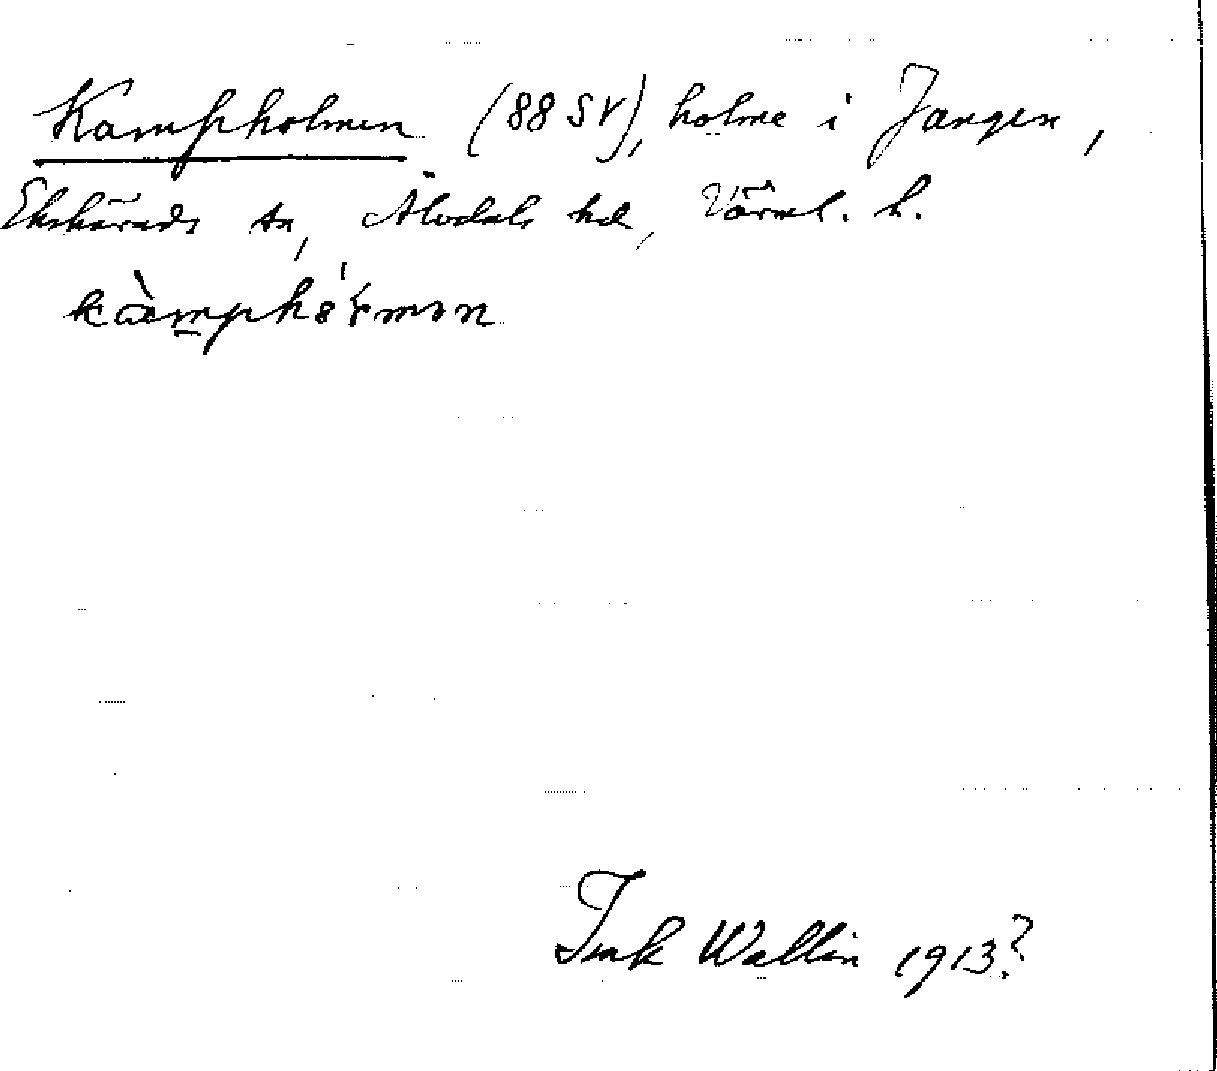 Kampholmen (88 SV), holme i Jangen,
Ekshärads sn, Älvdals hd, Värml. l.
Wallin 1913?